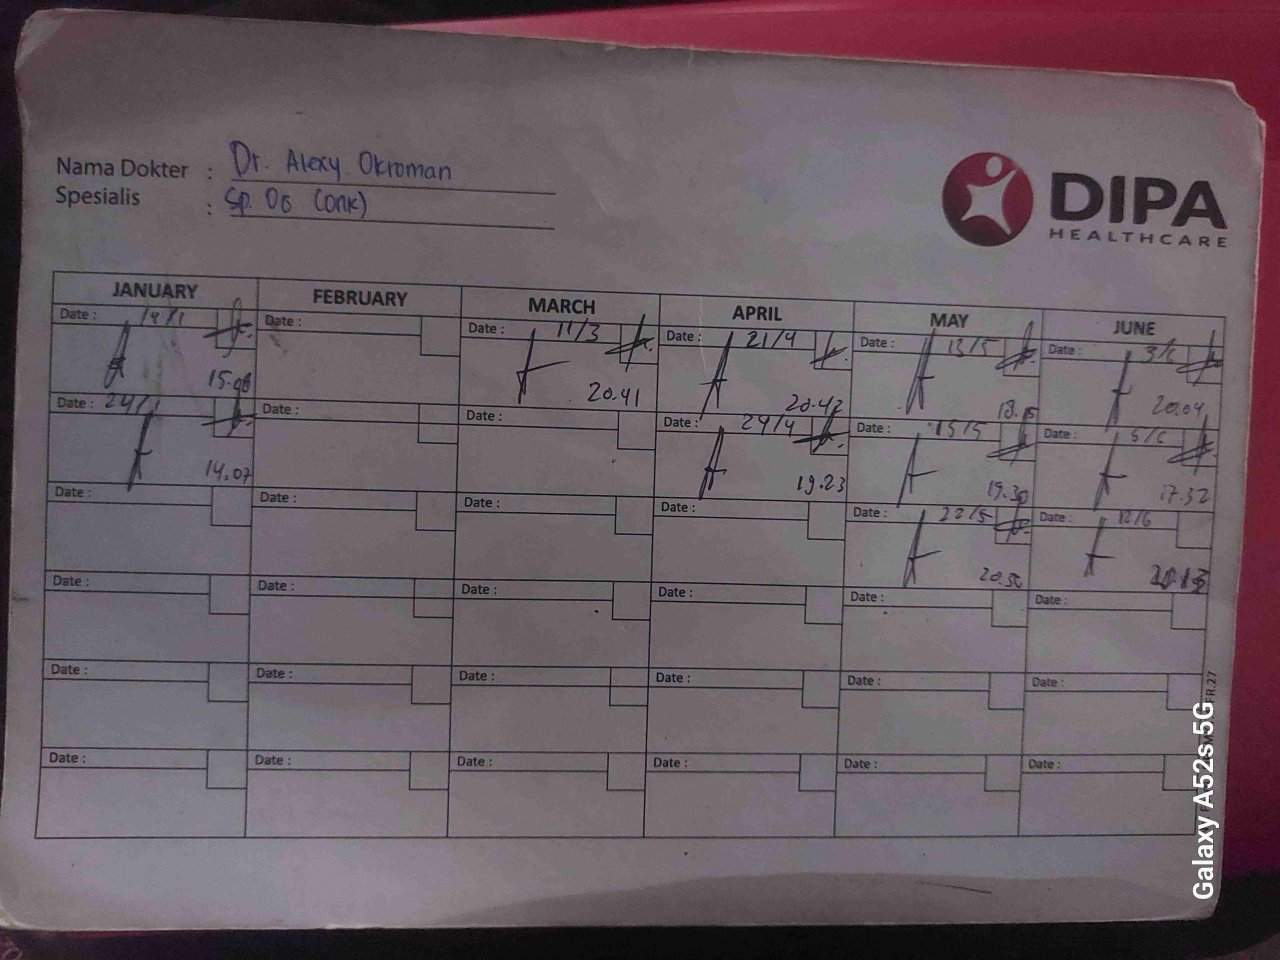 Nama Dokter : Dr. Alexy Okroman
Spesialis : Sp. OG (onk)
DIPA
HEALTHCARE
JANUARY FEBRUARY MARCH APRIL MAY JUNE
Date : Date : Date : 11/3 Date : 21/4 Date : 13/5 Date :
20.41 20.42 20.04
Date : 24/1 Date : Date : Date : 24/4 Date : 15/5 Date :
14.07 19.23 19.30 17.32
Date : Date : Date : Date : Date : 22/5 Date : 12/6
Date : Date : Date : Date : Date : Date :
Date : Date : Date : Date : Date : Date :
Date : Date : Date : Date : Date : Date :
FR.27
Galaxy A52s 5G